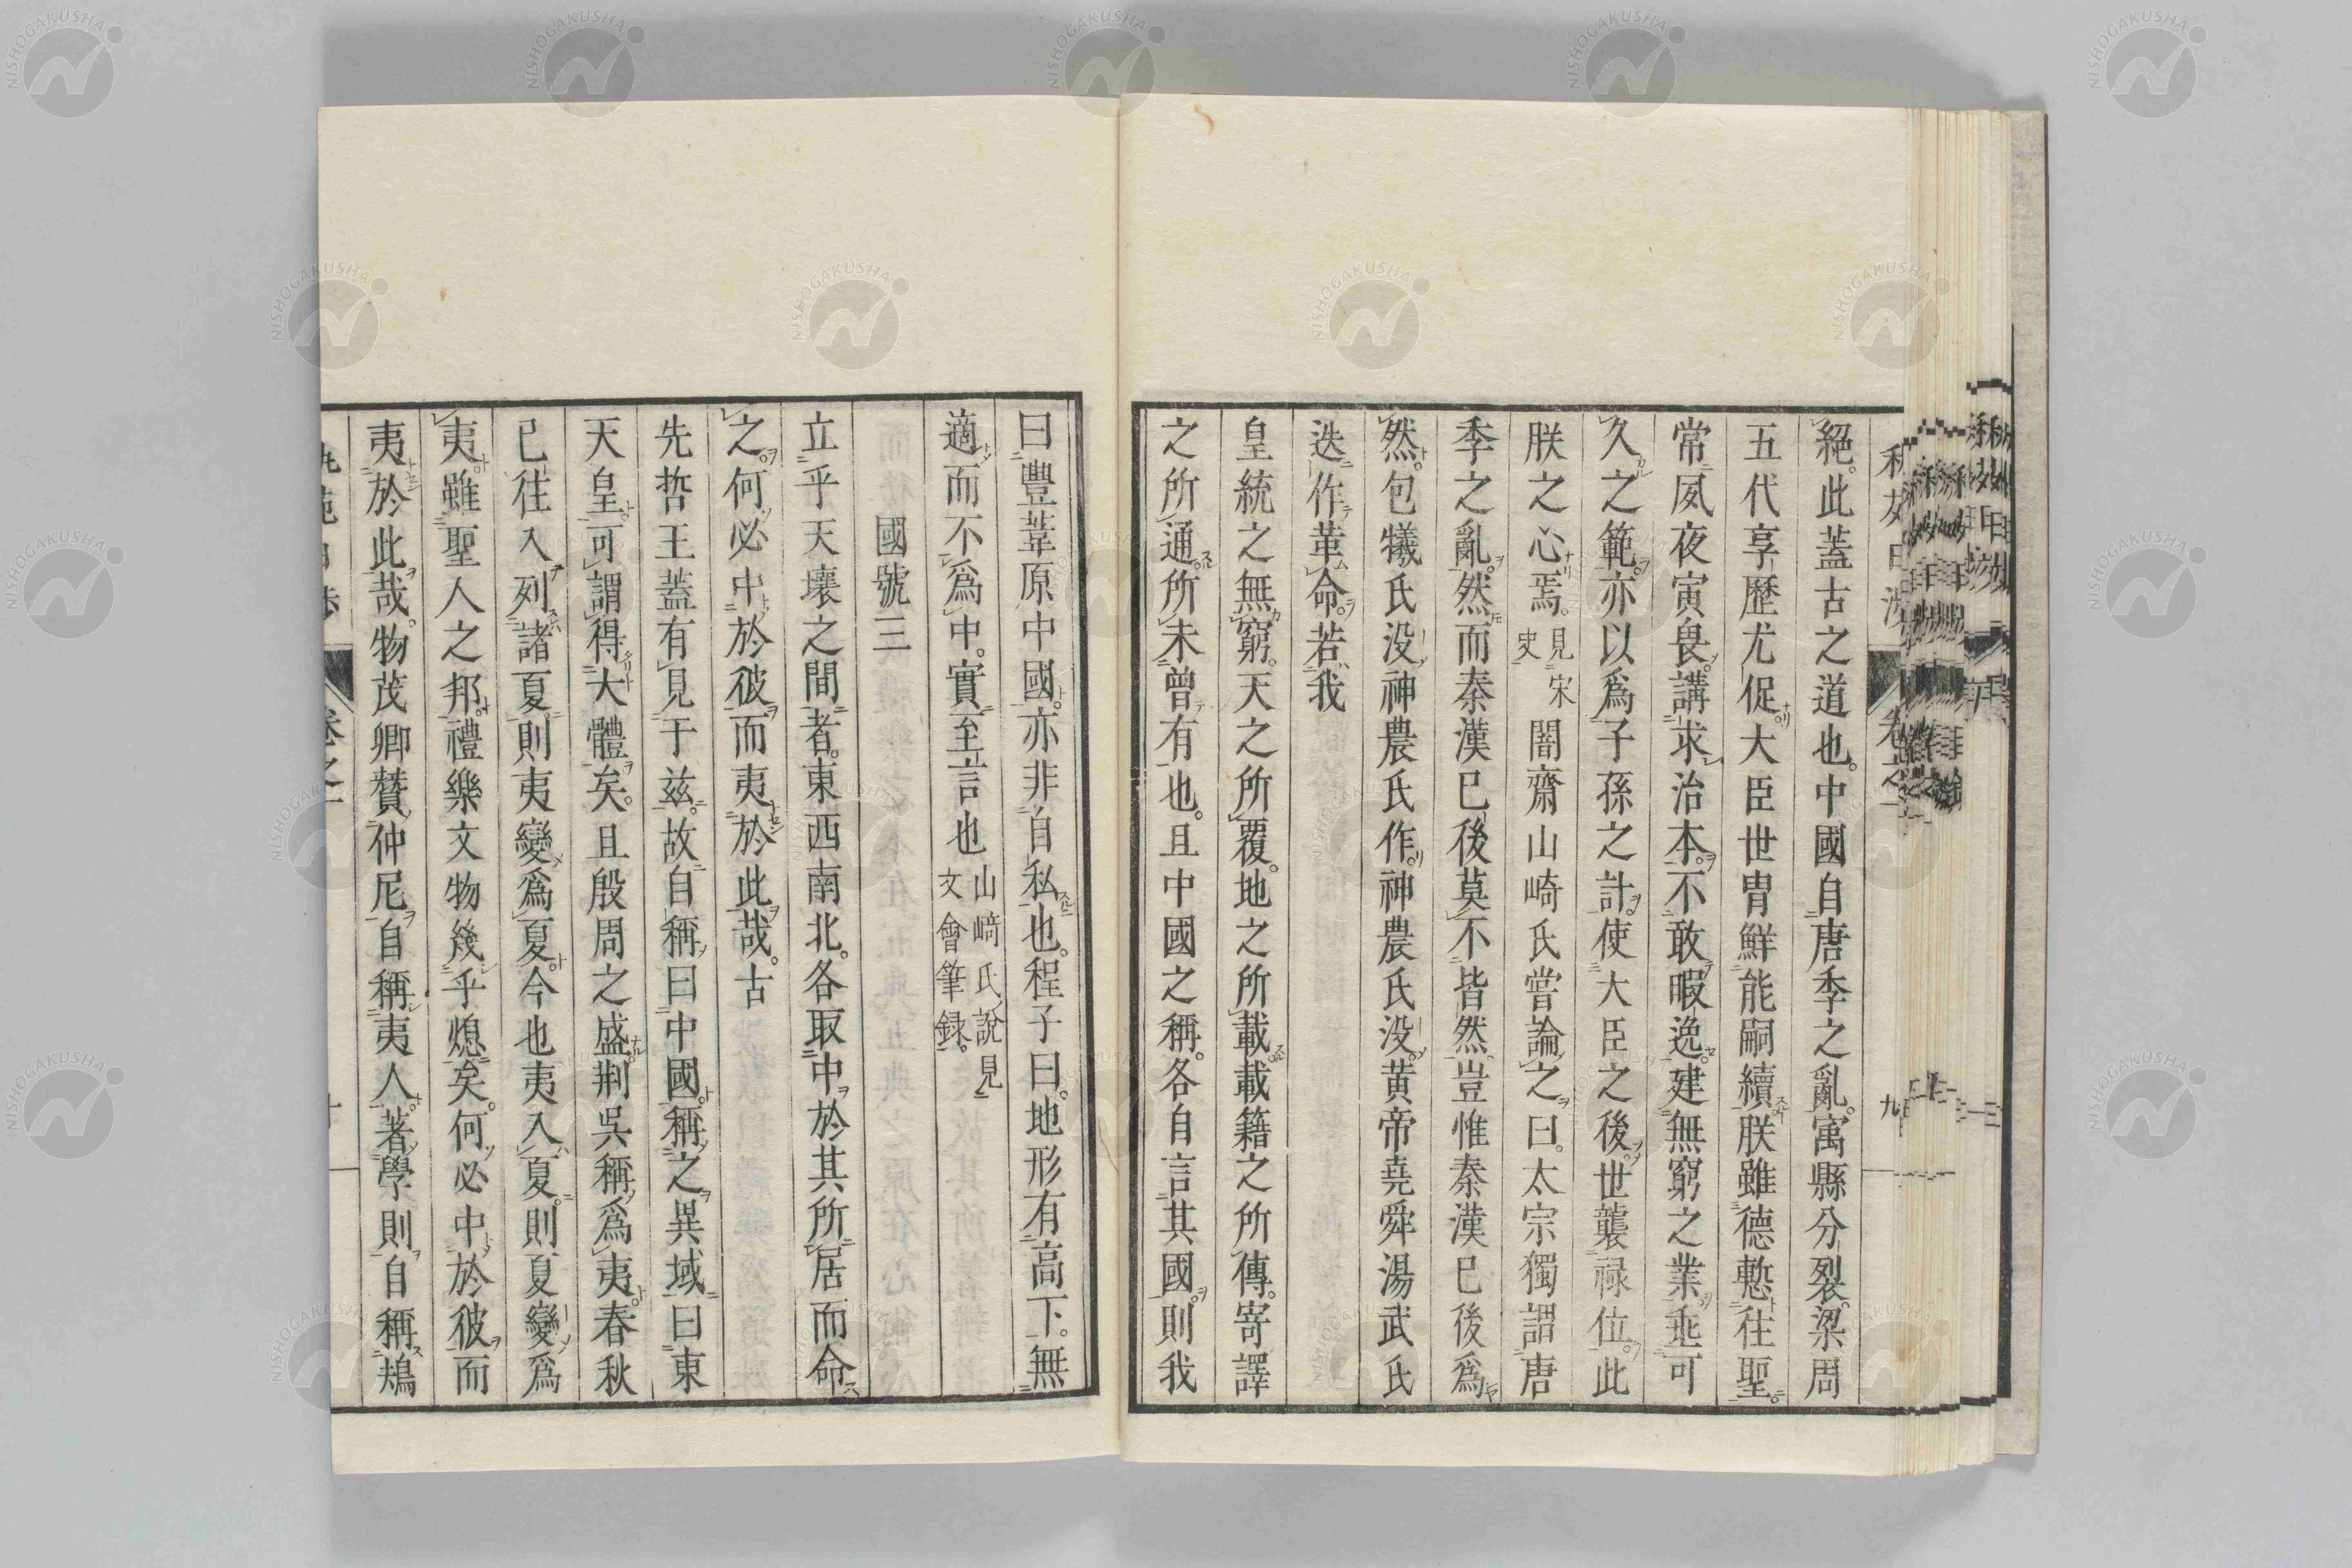 絕。此蓋古之道也。中國自唐季之亂。寓縣分裂。梁周
五代享歷尤促。大臣世冑鮮能嗣續。朕雖德慙往聖。
常夙夜寅畏。講求治本。不敢暇逸。建無窮之業。垂可
久之範。亦以爲子孫之計。使大臣之後。世襲祿位。此
朕之心焉。見宋史闇齋山崎氏嘗論之曰。太宗獨謂唐
季之亂。然而秦漢已後莫不皆然。豈惟秦漢已後爲
然。包犧氏没神農氏作。神農氏没。黃帝堯舜湯武氏
迭作革命。若我
皇統之無窮。天之所覆。地之所載。載籍之所傳。寄譯
之所通。所未曾有也。且中國之稱。各自言其國。則我
卷之一
九
曰豐葦原中國。亦非自私也。程子曰。地形有高下。無
適而不爲中。實至言也山崎氏說見文會筆録。
國號三
立乎天壤之間者。東西南北。各取中於其所居而命
之。何必中於彼而夷於此哉。古
先哲王蓋有見于兹。故自稱曰中國。稱之異域曰東
天皇。可謂得大體矣。且殷周之盛。荆吳稱爲夷。春秋
已往入列諸夏。則夷變爲夏。今也夷入夏。則夏變爲
夷。雖聖人之邦。禮樂文物幾乎熄矣。何必中於彼而
夷於此哉。物茂卿賛仲尼自稱夷人。著學則自稱鴂
卷之一
十
NISHOGAKUSHA